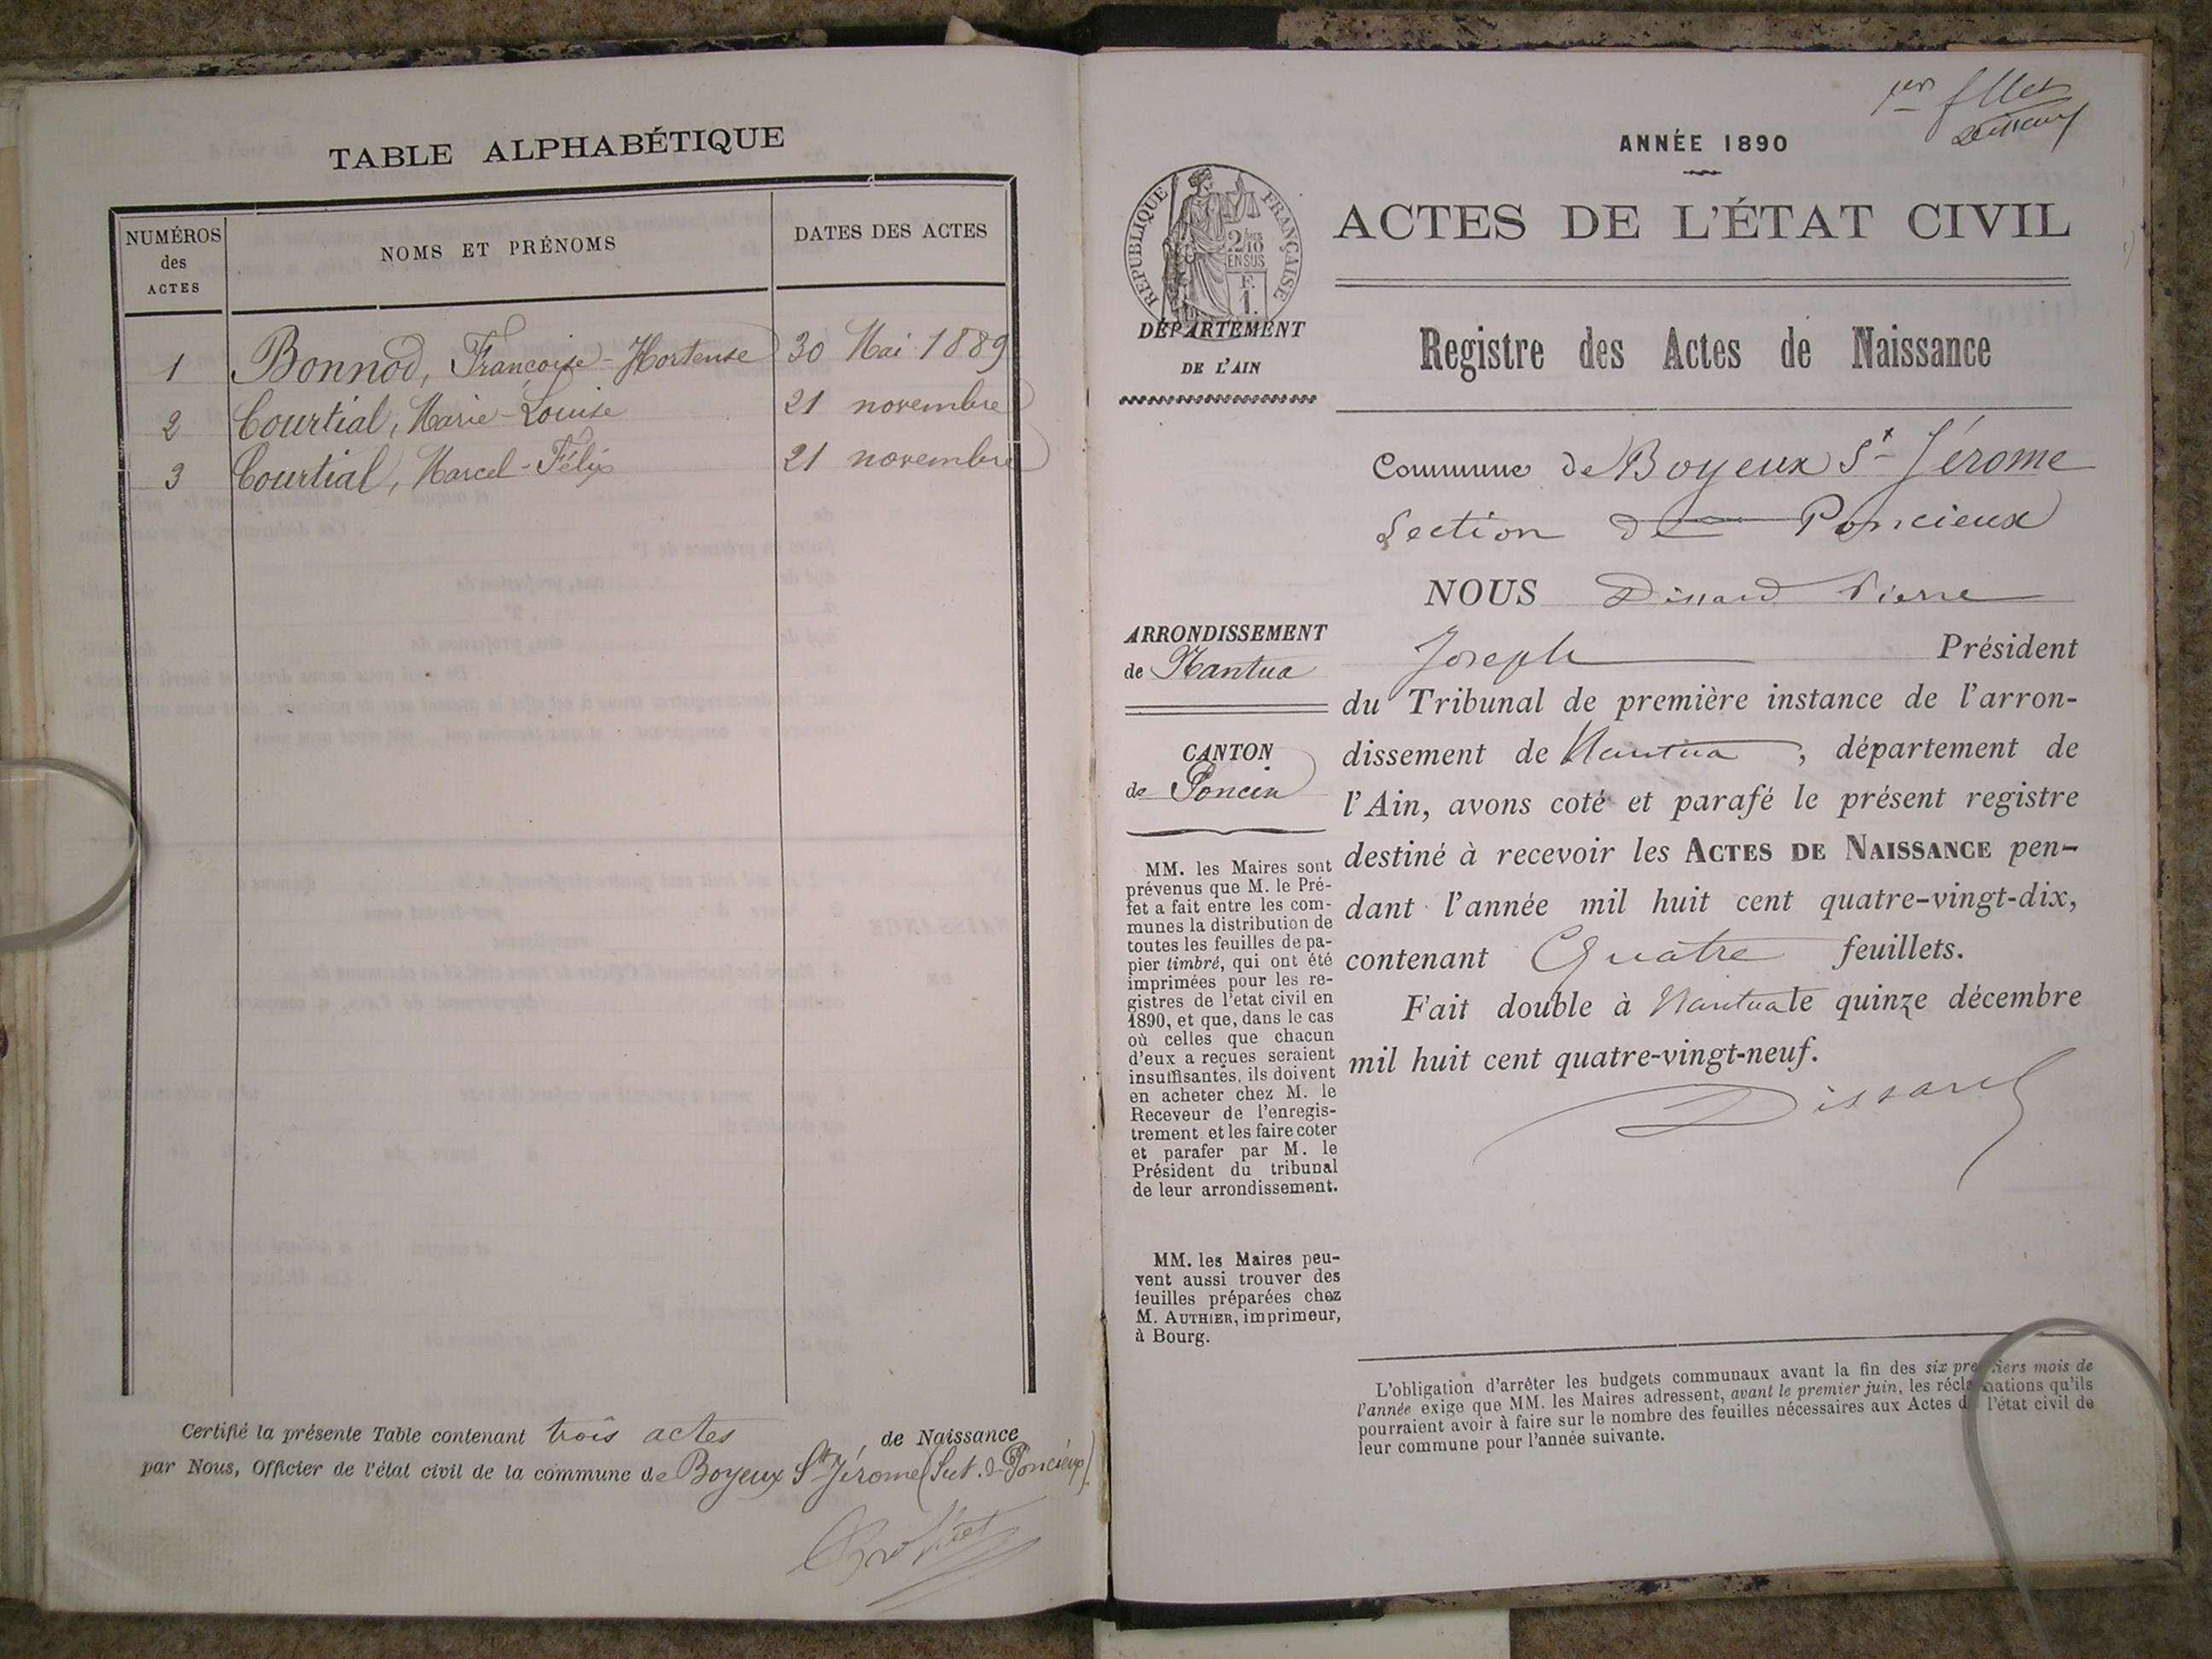 TABLE ALPHABÉTIQUE
NUMÉROS
des
ACTES
NOMS ET PRÉNOMS
DATES DES ACTES
1 Bonnod, Françoise-Hortense 30 Mai 1889
2 Courtial, Marie-Louise 21 novembre
3 Courtial, Marcel-Félix 21 novembre
Certifié la présente Table contenant trois actes de Naissance
par Nous, Officier de l'état civil de la commune de Boyeux St Jérome (Sect. de Poncieux)
1er
ANNÉE 1890
RÉPUBLIQUE FRANÇAISE
2/10
EN SUS
F.
1.
ACTES DE L'ÉTAT CIVIL
DÉPARTEMENT
DE L'AIN
Registre des Actes de Naissance
Commune de Boyeux St Jérome
Section de Poncieux
ARRONDISSEMENT
de Nantua
CANTON
de Poncin
MM. les Maires sont
prévenus que M. le Pré-
fet a fait entre les com-
munes la distribution de
toutes les feuilles de pa-
pier timbré, qui ont été
imprimées pour les re-
gistres de l'etat civil en
1890, et que, dans le cas
où celles que chacun
d'eux a reçues seraient
insuffisantes, ils doivent
en acheter chez M. le
Receveur de l'enregis-
trement et les faire coter
et parafer par M. le
Président du tribunal
de leur arrondissement.
MM. les Maires peu-
vent aussi trouver des
feuilles préparées chez
M. AUTHIER, imprimeur,
à Bourg.
NOUS Dissard Pierre
Joseph Président
du Tribunal de première instance de l'arron-
dissement de Nantua ; département de
l'Ain, avons coté et parafé le présent registre
destiné à recevoir les ACTES DE NAISSANCE pen-
dant l'année mil huit cent quatre-vingt-dix,
contenant Quatre feuillets.
Fait double à Nantua le quinze décembre
mil huit cent quatre-vingt-neuf.
Dissard
L'obligation d'arrêter les budgets communaux avant la fin des six premiers mois de
l'année exige que MM. les Maires adressent, avant le premier juin, les réclamations qu'ils
pourraient avoir à faire sur le nombre des feuilles nécessaires aux Actes de l'état civil de
leur commune pour l'année suivante.